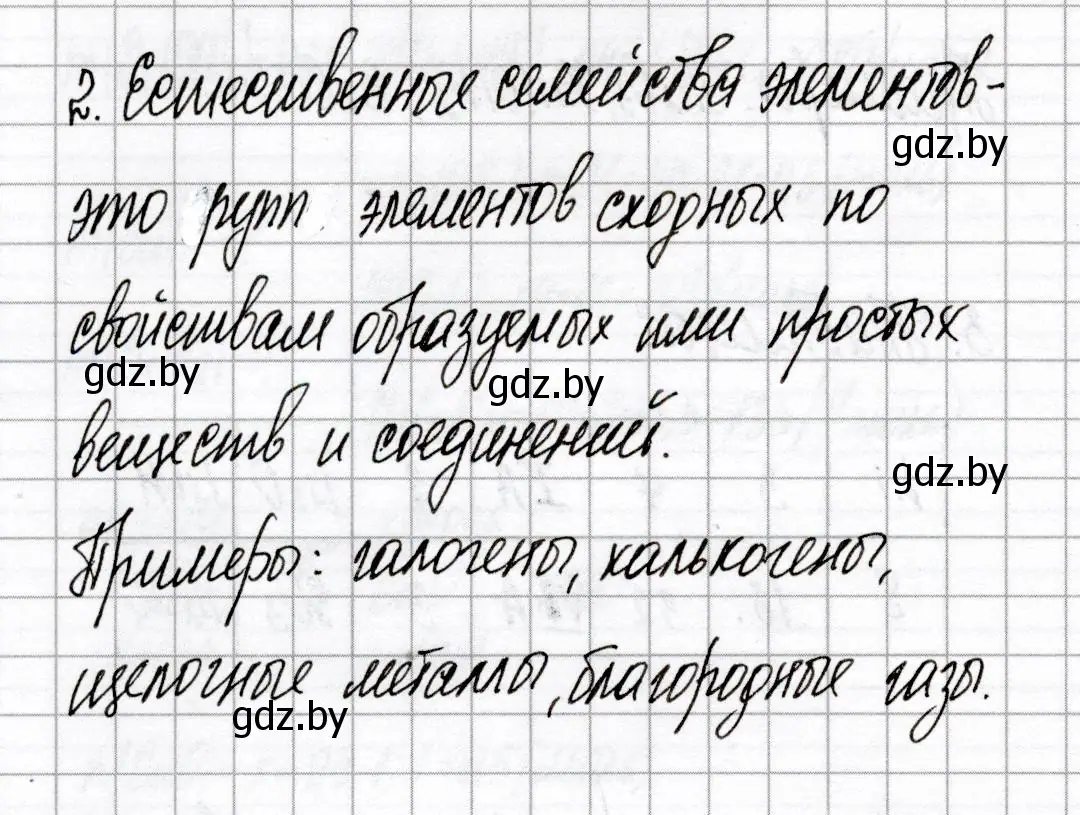 2. Естественные семейства элементов-
gdz.by
это рупп элементов сходных по
свойствам образуемых ими простых
gdz.by
gdz.by
веществ и соединений.
gdz.by
Примеры: галогены, халькогены,
щелочные металлы, благородные газы.
gdz.by